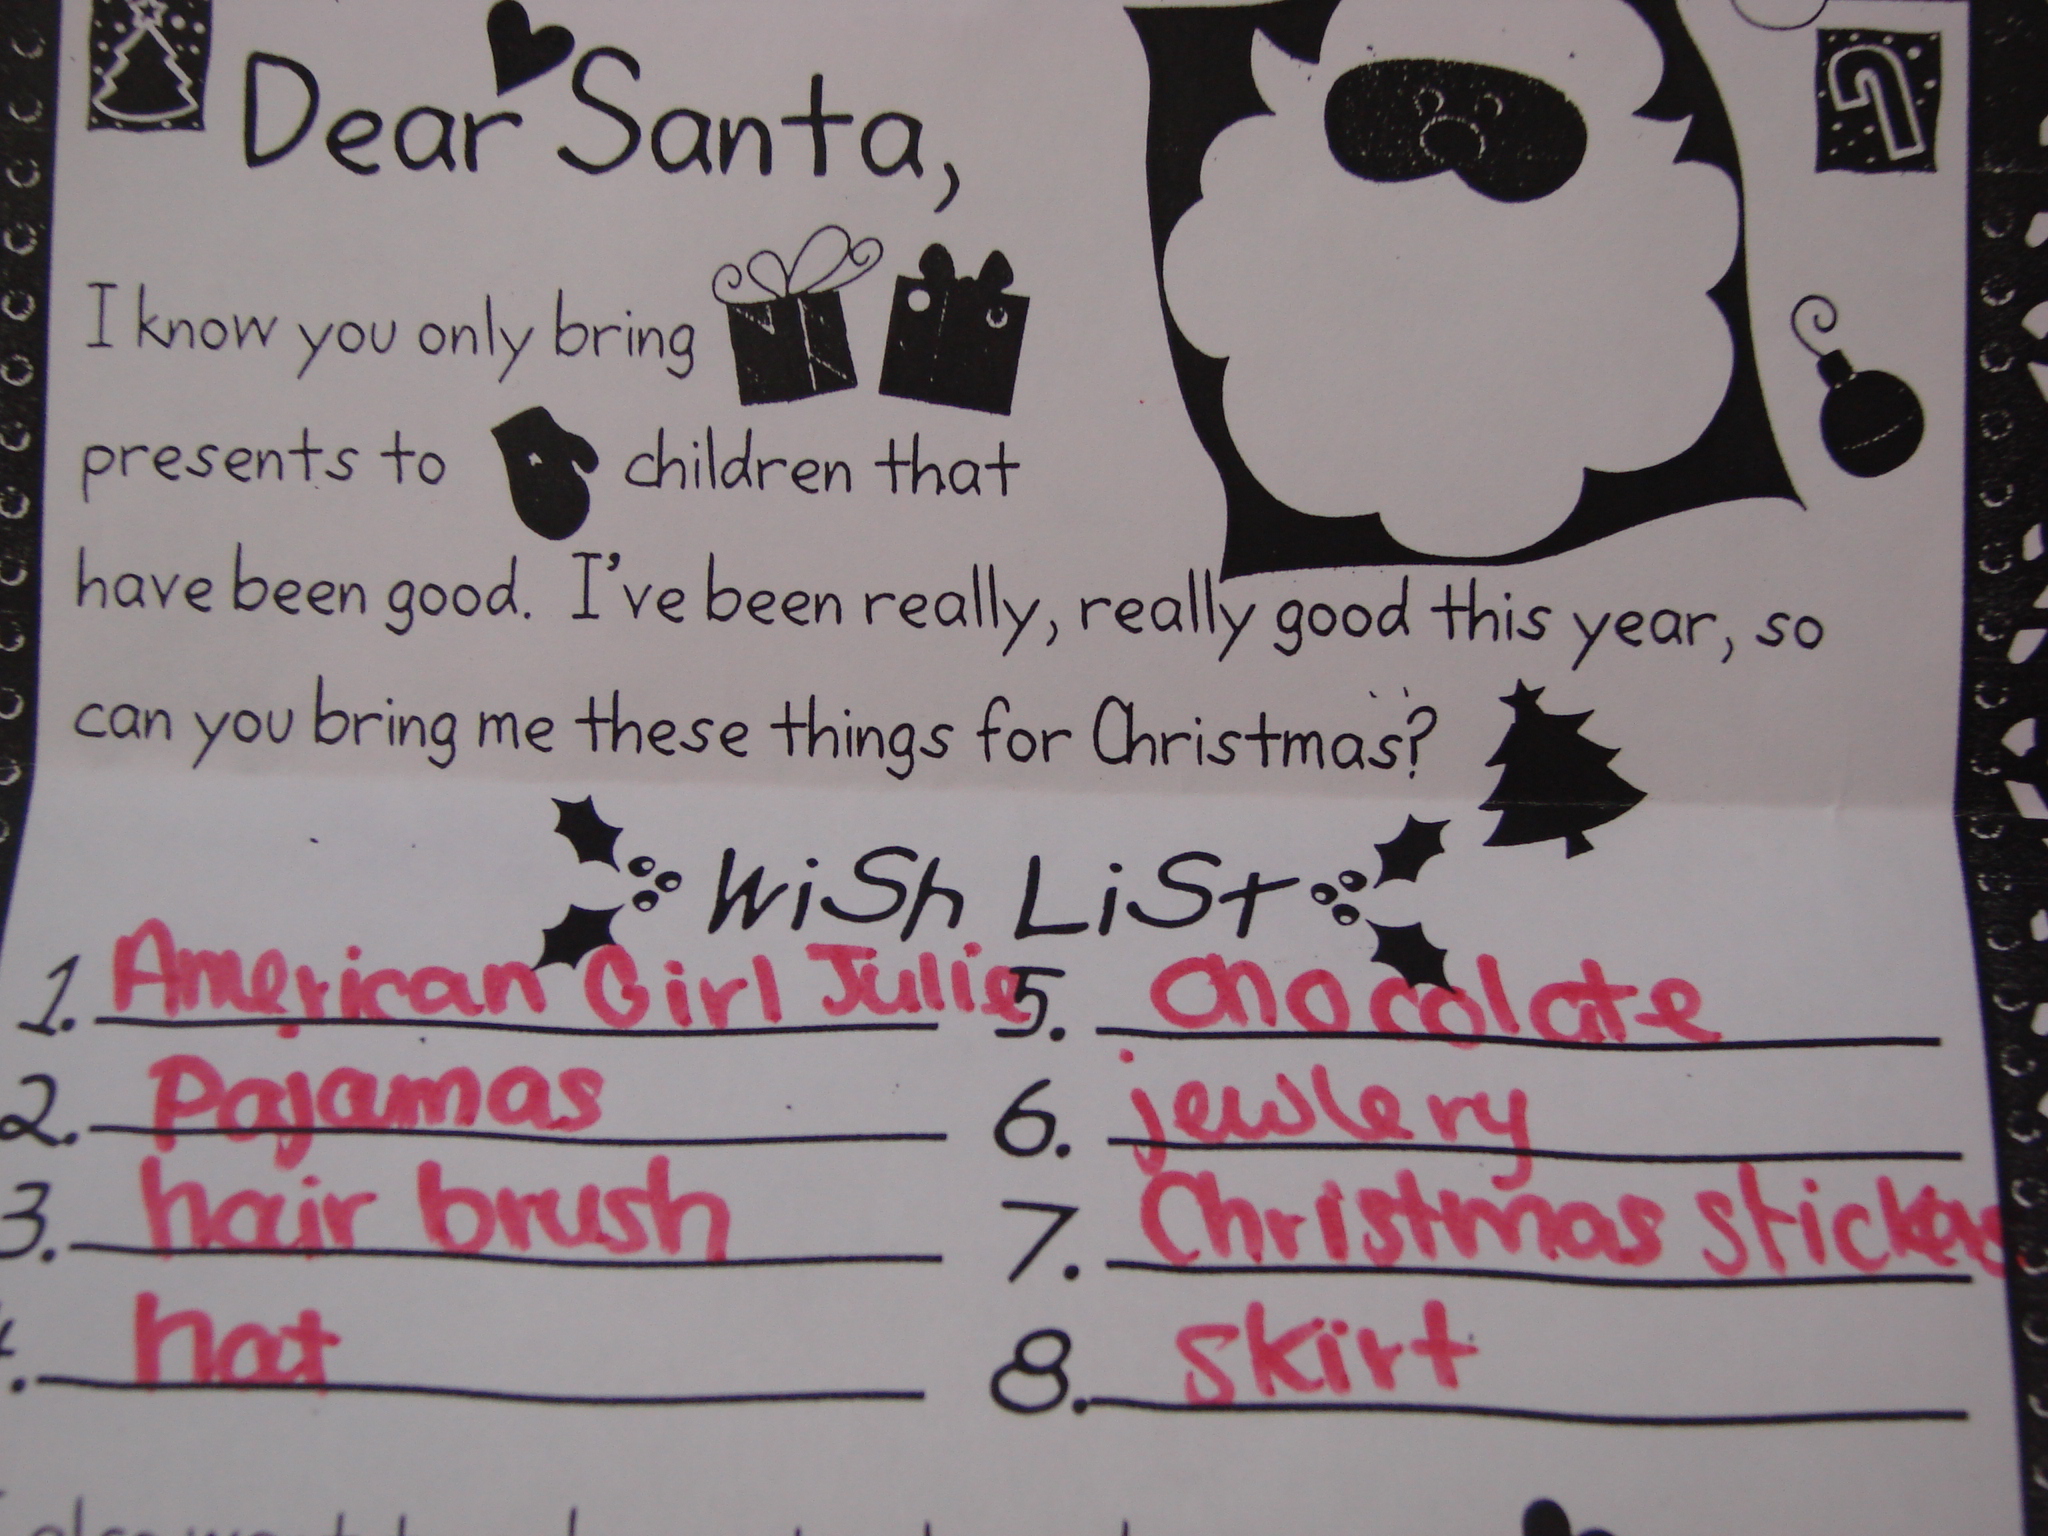 Dear Santa,
I know you only bring
presents to children that
have been good. I've been really, really good this year, so
can you bring me these things for Christmas?
WiSh LiSt
1. American Girl Julie
2. Pajamas
3. hair brush
4. hat
5. Chocolate
6. jewlery
7. Christmas stickers
8. skirt